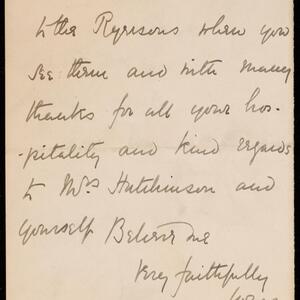 to the Ryersons when you
see them and with many
thanks for all your hos-
-pitality and kind regards
to Mrs Hutchinson and
yourself Believe me
Very faithfully